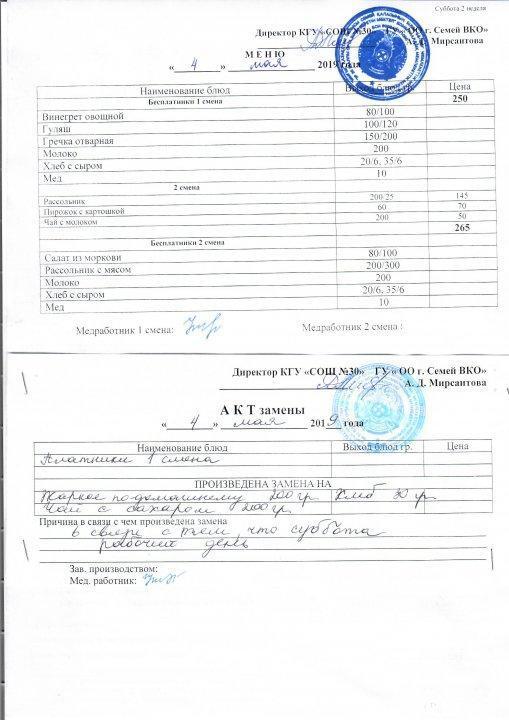 Суббота 2 неделя
Директор КГУ «СОШ №30» ГУ « ОО г. Семей ВКО»
А. Д. Мирсаитова
М Е Н Ю
« 4 » мая 2019 года
Наименование блюд Выход блюд гр. Цена
Бесплатники 1 смена 250
Винегрет овощной 80/100
Гуляш 100/120
Гречка отварная 150/200
Молоко 200
Хлеб с сыром 20/6, 35/6
Мед 10
2 смена
Рассольник 200/25 145
Пирожок с картошкой 60 70
Чай с молоком 200 50
265
Бесплатники 2 смена
Салат из моркови 80/100
Рассольник с мясом 200/300
Молоко 200
Хлеб с сыром 20/6, 35/6
Мед 10
Медработник 1 смена: Медработник 2 смена :
Директор КГУ «СОШ №30» ГУ « ОО г. Семей ВКО»
А. Д. Мирсаитова
А К Т замены
« 4 » мая 2019 года
Наименование блюд Выход блюд гр. Цена
Платники 1 смена
ПРОИЗВЕДЕНА ЗАМЕНА НА
Жаркое по-домашнему 200 гр. Хлеб 30 гр.
Чай с сахаром 200 гр.
Причина в связи с чем произведена замена
в связи с тем, что суббота
рабочий день
Зав. производством:
Мед. работник: